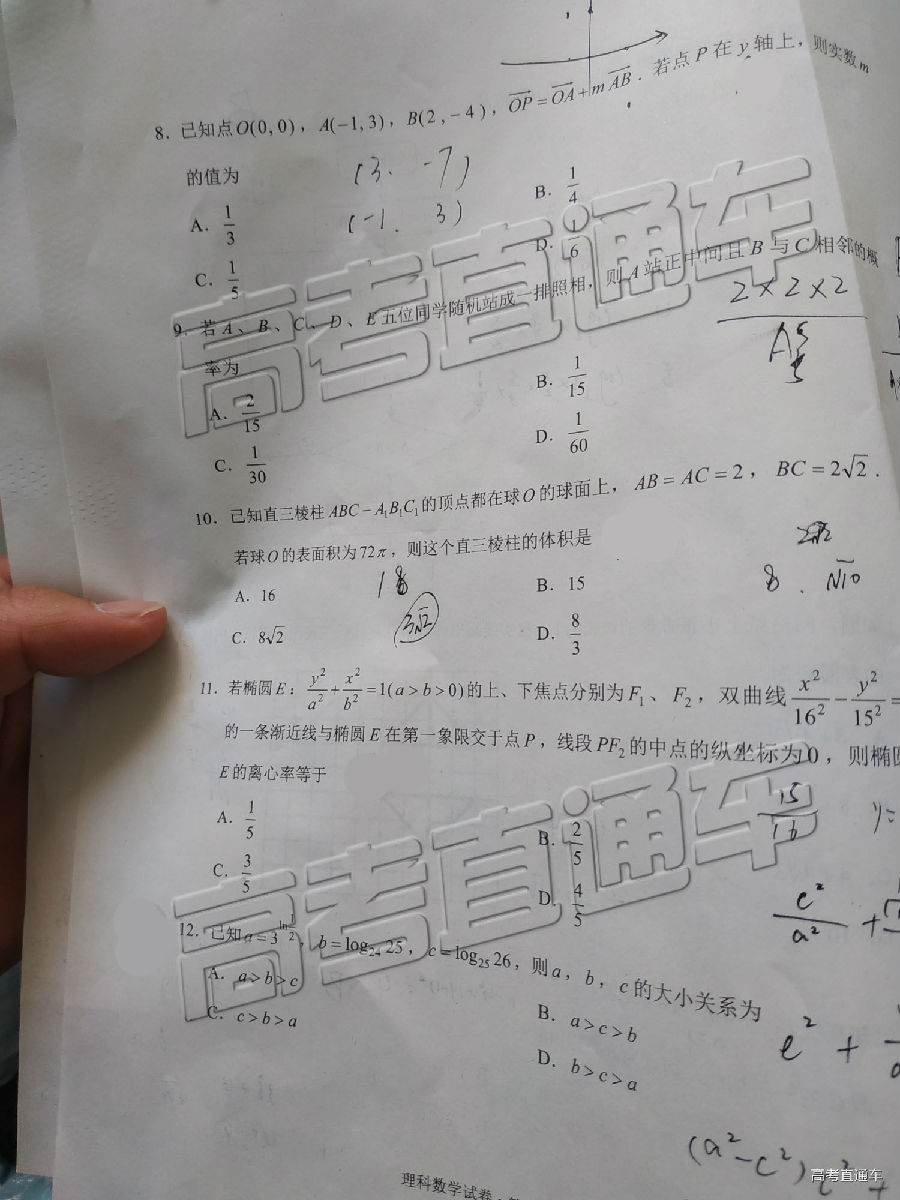 8. 已知点O(0,0)，A(−1,3)，B(2,−4)，\overline{OP}=\overline{OA}+m\overline{AB}．若点P在y轴上，则实数m
的值为
(3. -7)
(-1. 3)
A. 1/3
B. 1/4
C. 1/5
D. 1/6
9. 若A、B、C、D、E五位同学随机站成一排照相，则A站正中间且B与C相邻的概
率为
2×2×2
A
A. 2/15
B. 1/15
C. 1/30
D. 1/60
10. 已知直三棱柱ABC−A₁B₁C₁的顶点都在球O的球面上，AB=AC=2，BC=2√2．
若球O的表面积为72π，则这个直三棱柱的体积是
A. 16
18
B. 15
8. √10
C. 8√2
3√2
D. 8/3
11. 若椭圆E：y²/a²+x²/b²=1(a>b>0)的上、下焦点分别为F₁、F₂，双曲线x²/16²−y²/15²=
的一条渐近线与椭圆E在第一象限交于点P，线段PF₂的中点的纵坐标为0，则椭圆
E的离心率等于
15/16 y=
A. 1/5
B. 2/5
C. 3/5
D. 4/5
c²/a² +
12. 已知a=3^{ln 1/2}，b=log₂₄25，c=log₂₅26，则a，b，c的大小关系为
A. a>b>c
B. a>c>b
C. c>b>a
D. b>c>a
e² +
(a²-c²)c² +
理科数学试卷
高考直通车
高考直通车
高考直通车